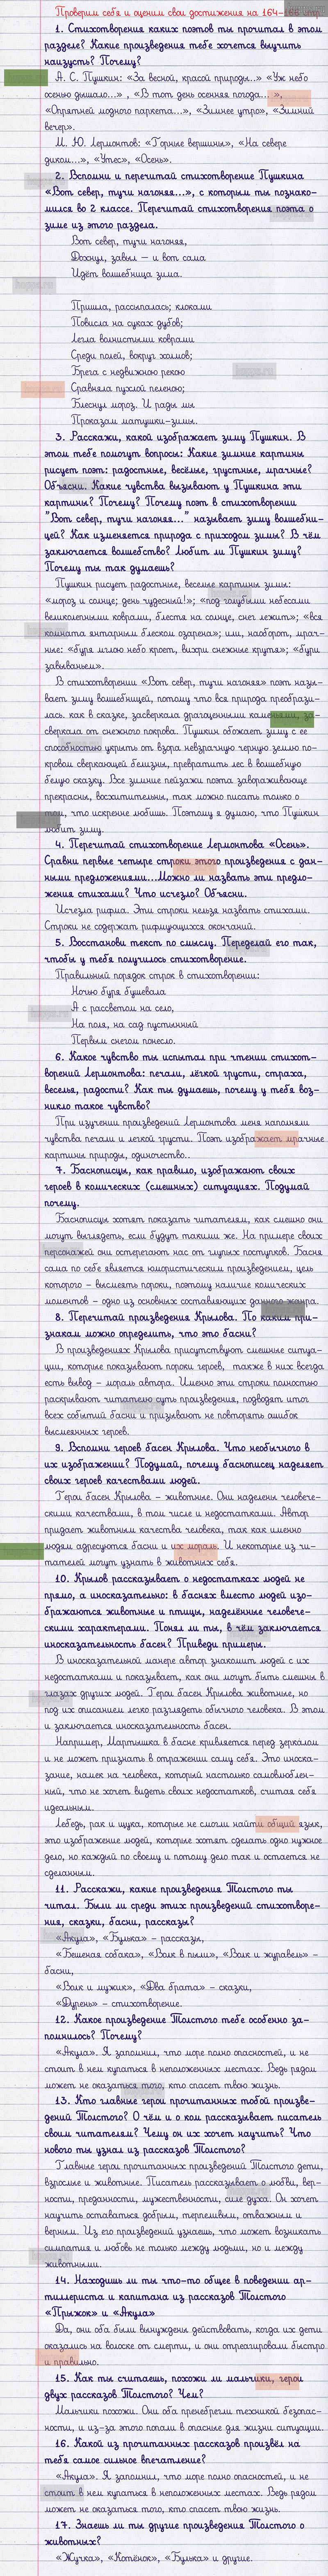 Проверим себя и оценим свои достижения на 164-166 стр.
1. Стихотворения каких поэтов ты прочитал в этом
разделе? Какие произведения тебе хочется выучить
наизусть? Почему?
А. С. Пушкин: «За весной, красой природы...» «Уж небо
осенью дышало...» , «В тот день осенняя погода... »,
«Опрятней модного паркета...», «Зимнее утро», «Зимний
вечер».
М. Ю. Лермонтов: «Горные вершины», «На севере
диком...», «Утес», «Осень».
2. Вспомни и перечитай стихотворение Пушкина
«Вот север, тучи нагоняя...», с которым ты познако-
мился во 2 классе. Перечитай стихотворения поэта о
зиме из этого раздела.
Вот север, тучи нагоняя,
Дохнул, завыл – и вот сама
Идёт волшебница зима.
Пришла, рассыпалась; клоками
Повисла на суках дубов;
Легла волнистыми коврами
Среди полей, вокруг холмов;
Брега с недвижною рекою
Сравняла пухлой пеленою;
Блеснул мороз. И рады мы
Проказам матушки-зимы.
3. Расскажи, какой изображает зиму Пушкин. В
этом тебе помогут вопросы: Какие зимние картины
рисует поэт: радостные, весёлые, грустные, мрачные?
Объясни. Какие чувства вызывают у Пушкина эти
картины? Почему? Почему поэт в стихотворении
"Вот север, тучи нагоняя..." называет зиму волшебни-
цей? Как изменяется природа с приходом зимы? В чём
заключается волшебство? Любит ли Пушкин зиму?
Почему ты так думаешь?
Пушкин рисует радостные, веселые картины зимы:
«мороз и солнце; день чудесный!»; «под голубыми небесами
великолепными коврами, блестя на солнце, снег лежит»; «вся
комната янтарным блеском озарена»; или, наоборот, мрач-
ные: «буря мглою небо кроет, вихри снежные крутя»; «бури
завываньем».
В стихотворении «Вот север, тучи нагоняя» поэт назы-
вает зиму волшебницей, потому что вся природа преобрази-
лась. как в сказке, засверкала драгоценными камнями, за-
сверкала от снежного покрова. Пушкин обожает зиму с ее
способностью укрыть от взора невзрачную черную землю по-
кровом сверкающей белизны, превратить лес в волшебную
белую сказку. Все зимние пейзажи поэта завораживающе
прекрасны, восхитительны, так можно писать только о
том, что искренне любишь. Поэтому я думаю, что Пушкин
любит зиму.
4. Перечитай стихотворение Лермонтова «Осень».
Сравни первые четыре строки этого произведения с дан-
ными предложениями...Можно ли назвать эти предло-
жения стихами? Что исчезло? Объясни.
Исчезла рифма. Эти строки нельзя назвать стихами.
Строки не содержат рифмующихся окончаний.
5. Восстанови текст по смыслу. Переделай его так,
чтобы у тебя получилось стихотворение.
Правильный порядок строк в стихотворении:
Ночью буря бушевала
А с рассветом на село,
На поля, на сад пустынный
Первым снегом понесло.
6. Какое чувство ты испытал при чтении стихот-
ворений Лермонтова: печали, лёгкой грусти, страха,
веселья, радости? Как ты думаешь, почему у тебя воз-
никло такое чувство?
При изучении произведений Лермонтова меня наполняли
чувства печали и легкой грусти. Поэт изображает мрачные
картины природы, одиночество..
7. Баснописцы, как правило, изображают своих
героев в комических (смешных) ситуациях. Подумай
почему.
Баснописцы хотят показать читателям, как смешно они
могут выглядеть, если будут такими же. На примере своих
персонажей они остерегают нас от глупых поступков. Басня
сама по себе является юмористическим произведением, цель
которого – высмеять пороки, поэтому наличие комических
моментов – одно из основных составляющих данного жанра.
8. Перечитай произведения Крылова. По каким при-
знакам можно определить, что это басни?
В произведениях Крылова присутствуют смешные ситуа-
ции, которые показывают пороки героев, также в них всегда
есть вывод – мораль автора. Именно эти строки полностью
раскрывают читателю суть произведения, подводят итог
всех событий басни и призывают не повторять ошибок
высмеянных героев.
9. Вспомни героев басен Крылова. Что необычного в
их изображении? Подумай, почему баснописец наделяет
своих героев качествами людей.
Герои басен Крылова – животные. Они наделены человече-
скими качествами, в том числе и недостатками. Автор
придает животным качества человека, так как именно
людям адресуются басни и их мораль. И некоторые из чи-
тателей могут узнать в животных себя.
10. Крылов рассказывает о недостатках людей не
прямо, а иносказательно: в баснях вместо людей изо-
бражаются животные и птицы, наделённые человече-
скими характерами. Понял ли ты, в чём заключается
иносказательность басен? Приведи примеры.
В иносказательной манере автор знакомит людей с их
недостатками и показывает, как они могут быть смешны в
глазах других людей. Герои басен Крылова животные, но
под их описанием легко разглядеть обычного человека. В этом
и заключается иносказательность басен.
Например, Мартышка в басне кривляется перед зеркалом
и не может признать в отражении саму себя. Это иноска-
зание, намек на человека, который настолько самовлюблен-
ный, что не хочет видеть своих недостатков, считая себя
идеальным.
Лебедь, рак и щука, которые не смогли найти общий язык,
это изображение людей, которые хотят сделать одно нужное
дело, но каждый по своему и потому дело так и остается не
сделанным.
11. Расскажи, какие произведения Толстого ты
читал. Были ли среди этих произведений стихотворе-
ния, сказки, басни, рассказы?
«Акула», «Булька» – рассказы,
«Бешеная собака», «Волк в пыли», «Волк и журавель» –
басни,
«Волк и мужик», «Два брата» – сказки,
«Дурень» – стихотворение.
12. Какое произведение Толстого тебе особенно за-
помнилось? Почему?
«Акула». Я запомнил, что море полно опасностей, и не
стоит в нем купаться в неположенных местах. Ведь рядом
может не оказаться того, кто спасет твою жизнь.
13. Кто главные герои прочитанных тобой произве-
дений Толстого? О чём и о ком рассказывает писатель
своим читателям? Чему он их хочет научить? Что
нового ты узнал из рассказов Толстого?
Главные герои прочитанных произведений Толстого дети,
взрослые и животные. Писатель рассказывает о любви, вер-
ности, преданности, мужественности, силе духа. Он хочет
научить оставаться добрым, терпеливым, отважным и
верным. Из его произведений узнаешь, что может возникать
симпатия и любовь не только между людьми, но и между
животными.
14. Находишь ли ты что-то общее в поведении ар-
тиллериста и капитана из рассказов Толстого
«Прыжок» и «Акула»
Да, они оба были вынуждены действовать, когда их дети
оказались на волоске от смерти, и они отреагировали быстро
и правильно.
15. Как ты считаешь, похожи ли мальчики, герои
двух рассказов Толстого? Чем?
Мальчики похожи. Они оба пренебрегли техникой безопас-
ности, и из-за этого попали в опасные для жизни ситуации.
16. Какой из прочитанных рассказов произвёл на
тебя самое сильное впечатление?
«Акула». Я запомнил, что море полно опасностей, и не
стоит в нем купаться в неположенных местах. Ведь рядом
может не оказаться того, кто спасет твою жизнь.
17. Знаешь ли ты другие произведения Толстого о
животных?
«Жучка», «Котёнок», «Булька» и другие.